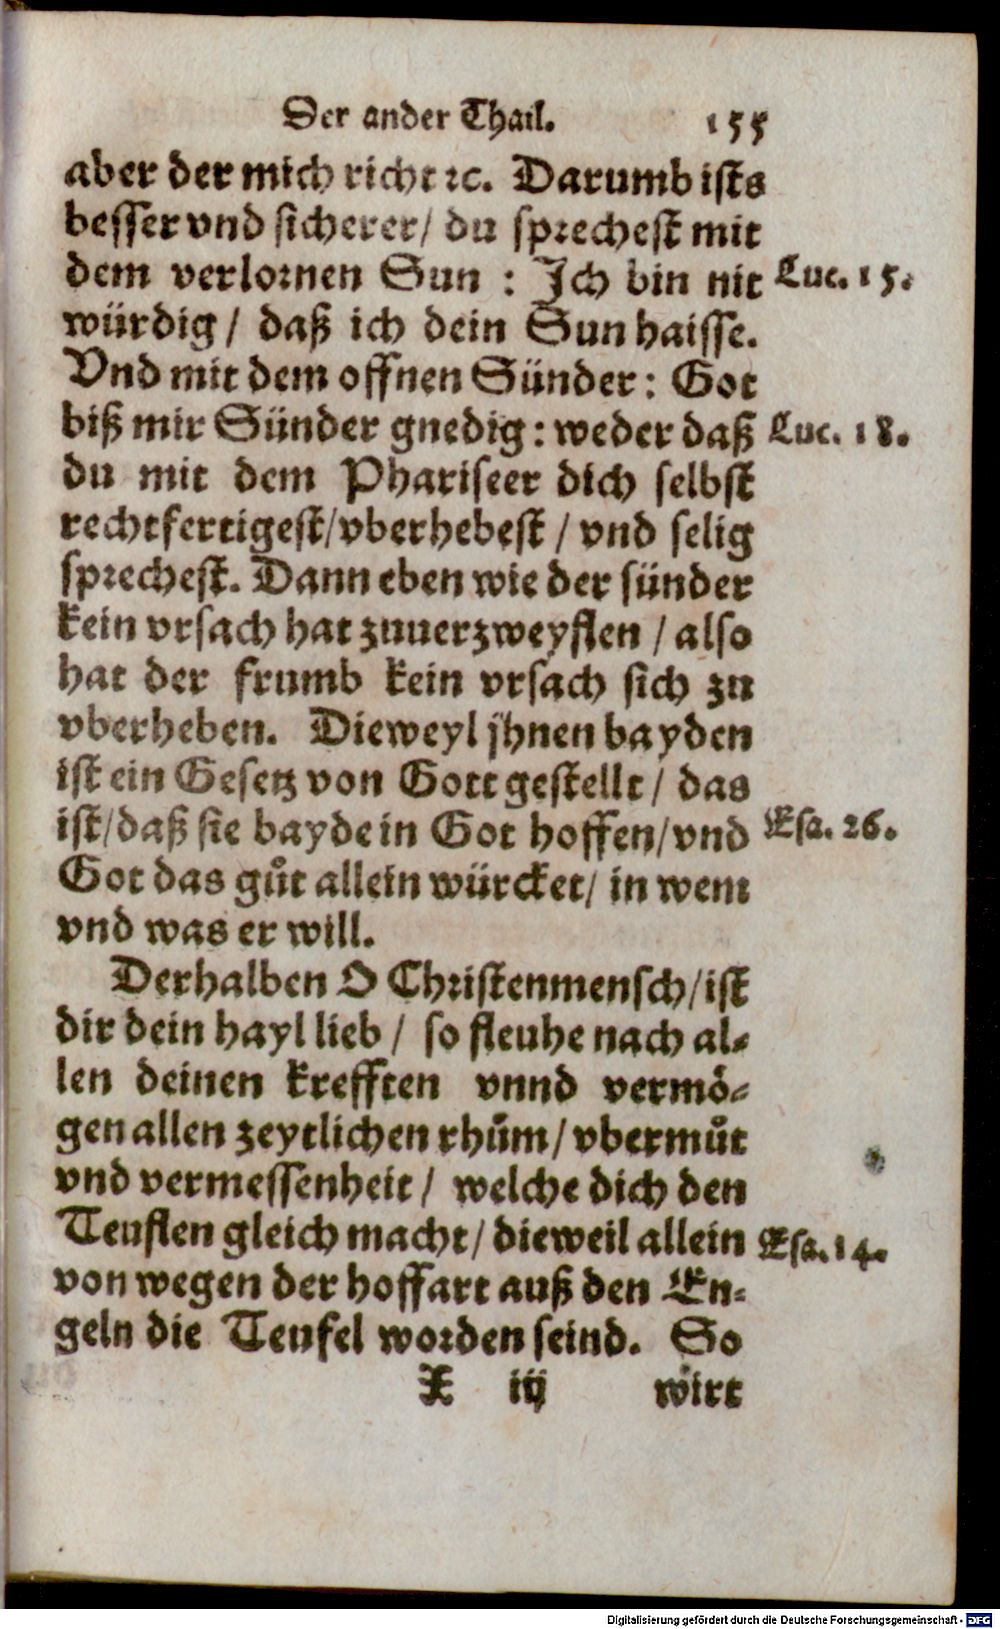 Der ander Thail. 155
aber der mich richt ꝛc. Darumb ists
besser vnd sicherer/ du sprechest mit
dem verlornen Sun : Ich bin nit Luc. 15.
würdig/ daß ich dein Sun haisse.
Vnd mit dem offnen Sünder: Got
biß mir Sünder gnedig: weder daß Luc. 18.
du mit dem Phariseer dich selbst
rechtfertigest/ vberhebest / vnd selig
sprechest. Dann eben wie der sünder
kein vrsach hat zuuerzweyflen / also
hat der frumb kein vrsach sich zu
vberheben. Dieweyl jhnen bayden
ist ein Gesetz von Gott gestellt / das
ist/ daß sie bayde in Got hoffen/ vnd Esa. 26.
Got das gůt allein würcket/ in wem
vnd was er will.
Derhalben O Christenmensch/ ist
dir dein hayl lieb / so fleuhe nach al⸗
len deinen krefften vnnd vermö⸗
gen allen zeytlichen rhům/ vbermůt
vnd vermessenheit / welche dich den
Teuflen gleich macht/ dieweil allein Esa. 14.
von wegen der hoffart auß den En⸗
geln die Teufel worden seind. So
X iij wirt
Digitalisierung gefördert durch die Deutsche Forschungsgemeinschaft - DFG